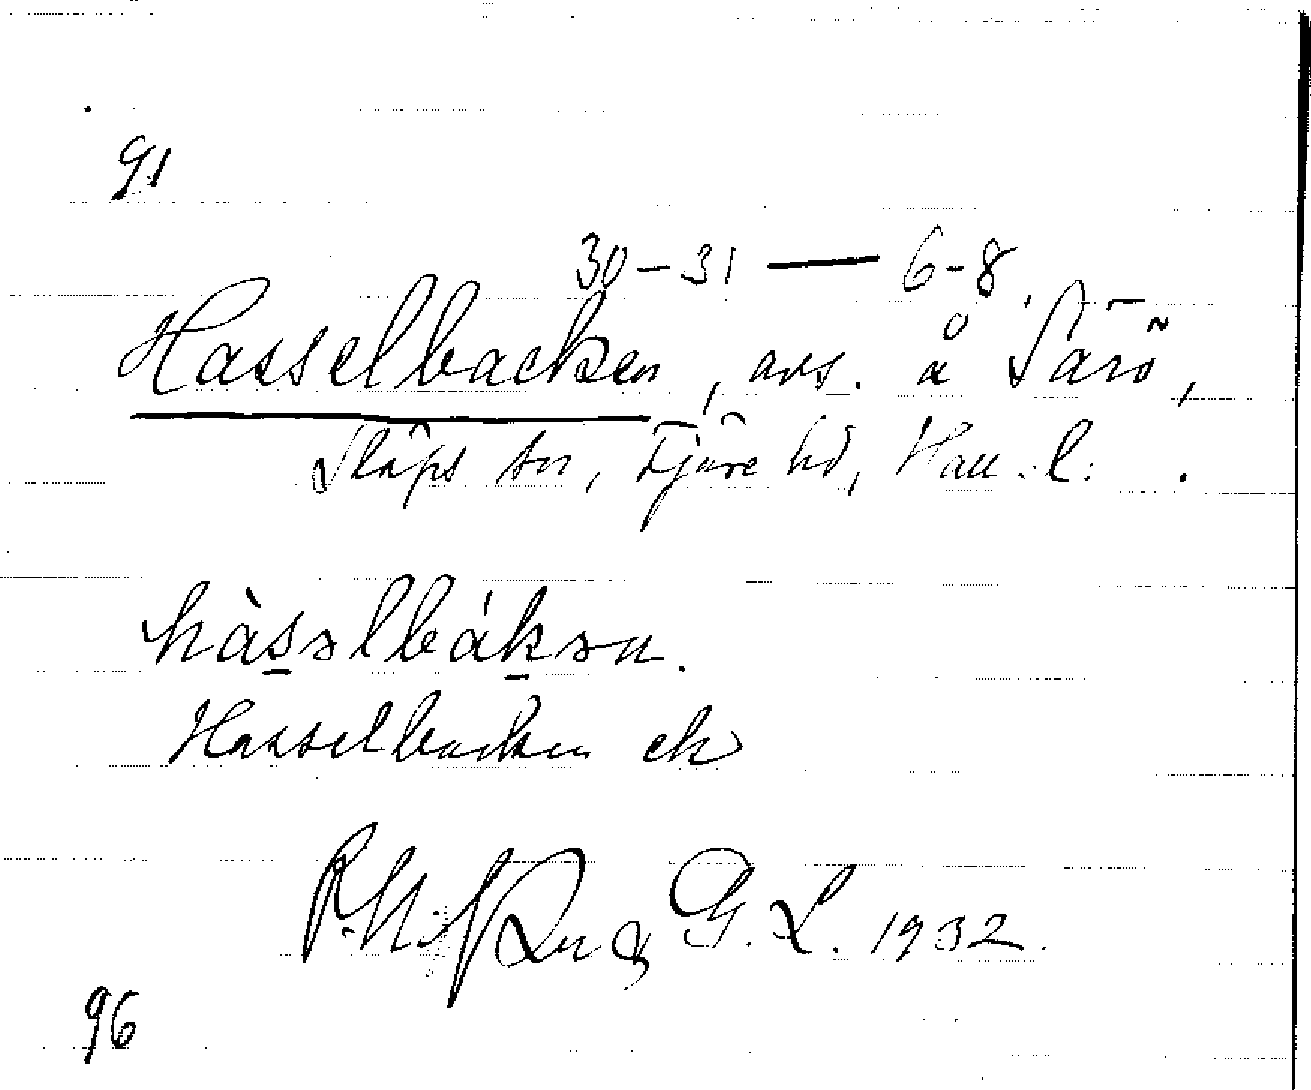 91
30–31 — 6–8.
Hasselbacken, avs. å Särö,
Släps sn, Fjäre hd, Hall. l.
hàsəlbákən.
Hasselbacken ek
G. L. 1932.
96